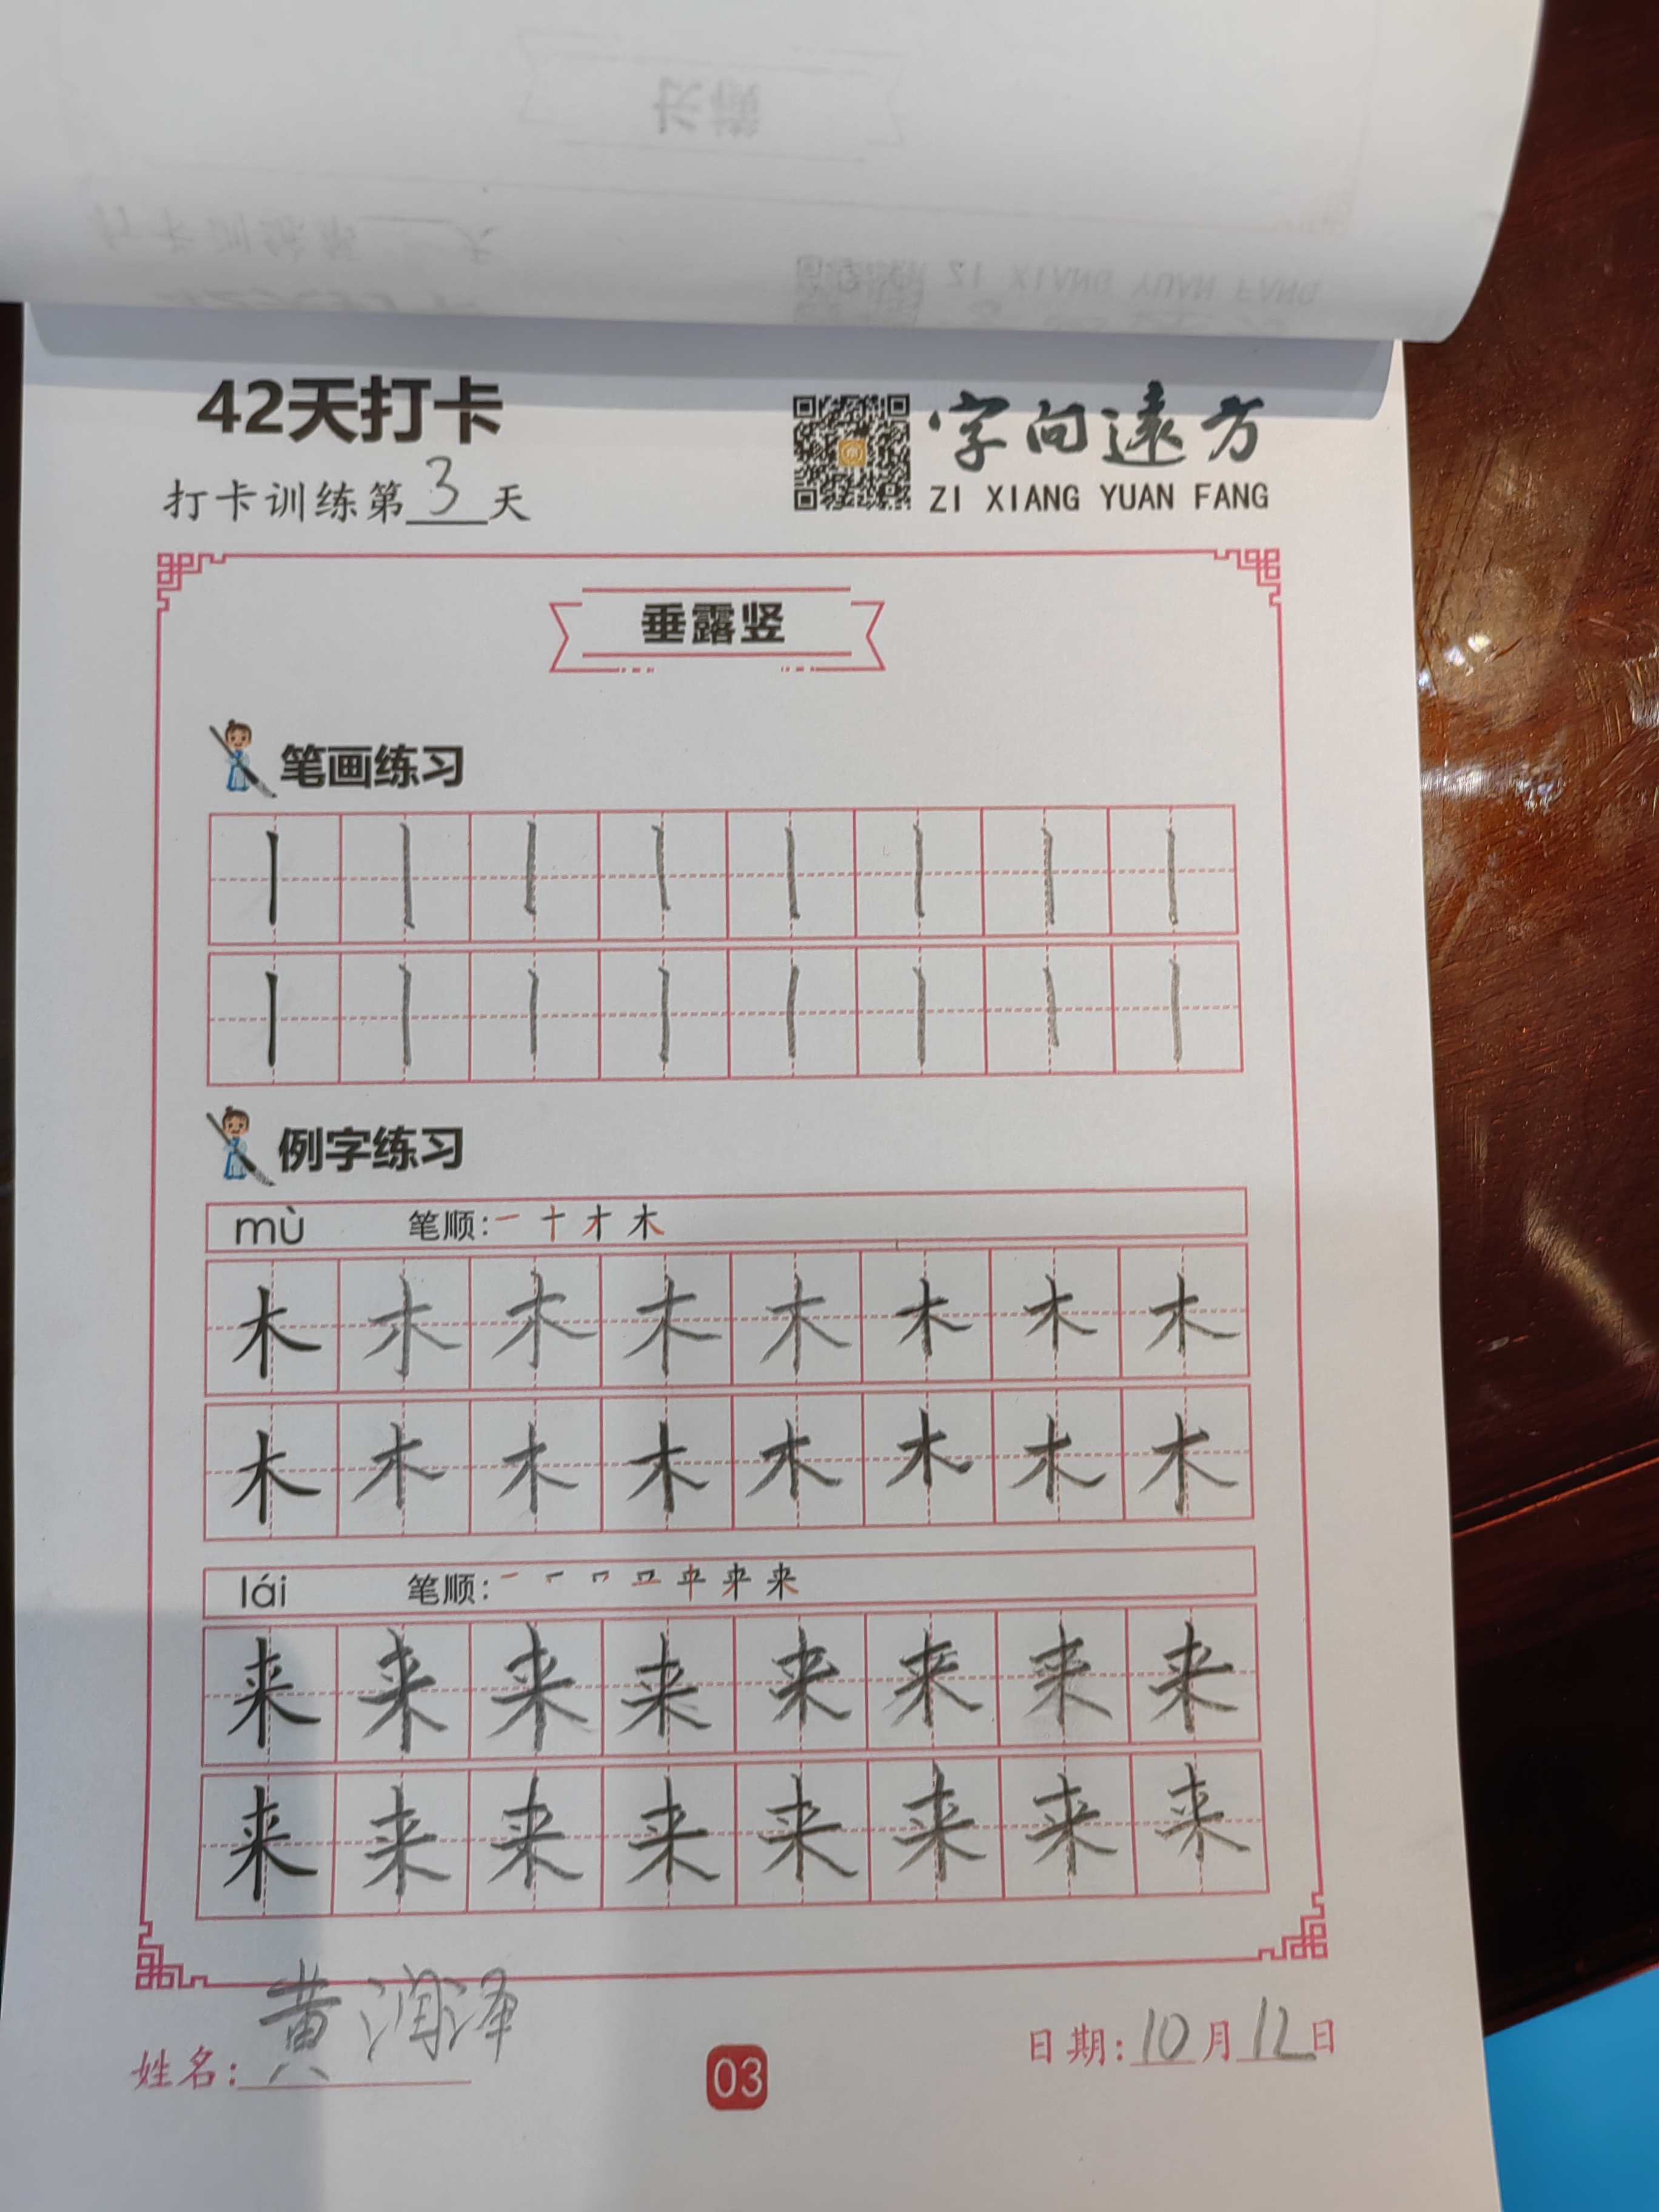 42天打卡
字向遠方
打卡训练第3天
ZI XIANG YUAN FANG
垂露竖
笔画练习
丨丨丨丨丨丨丨丨
丨丨丨丨丨丨丨丨
例字练习
mù 笔顺:一 十 才 木
木木木木木木木木
木木木木木木木木
lái 笔顺:
来来来来来来来来
来来来来来来来来
姓名:黄润泽
03
日期:10月12日